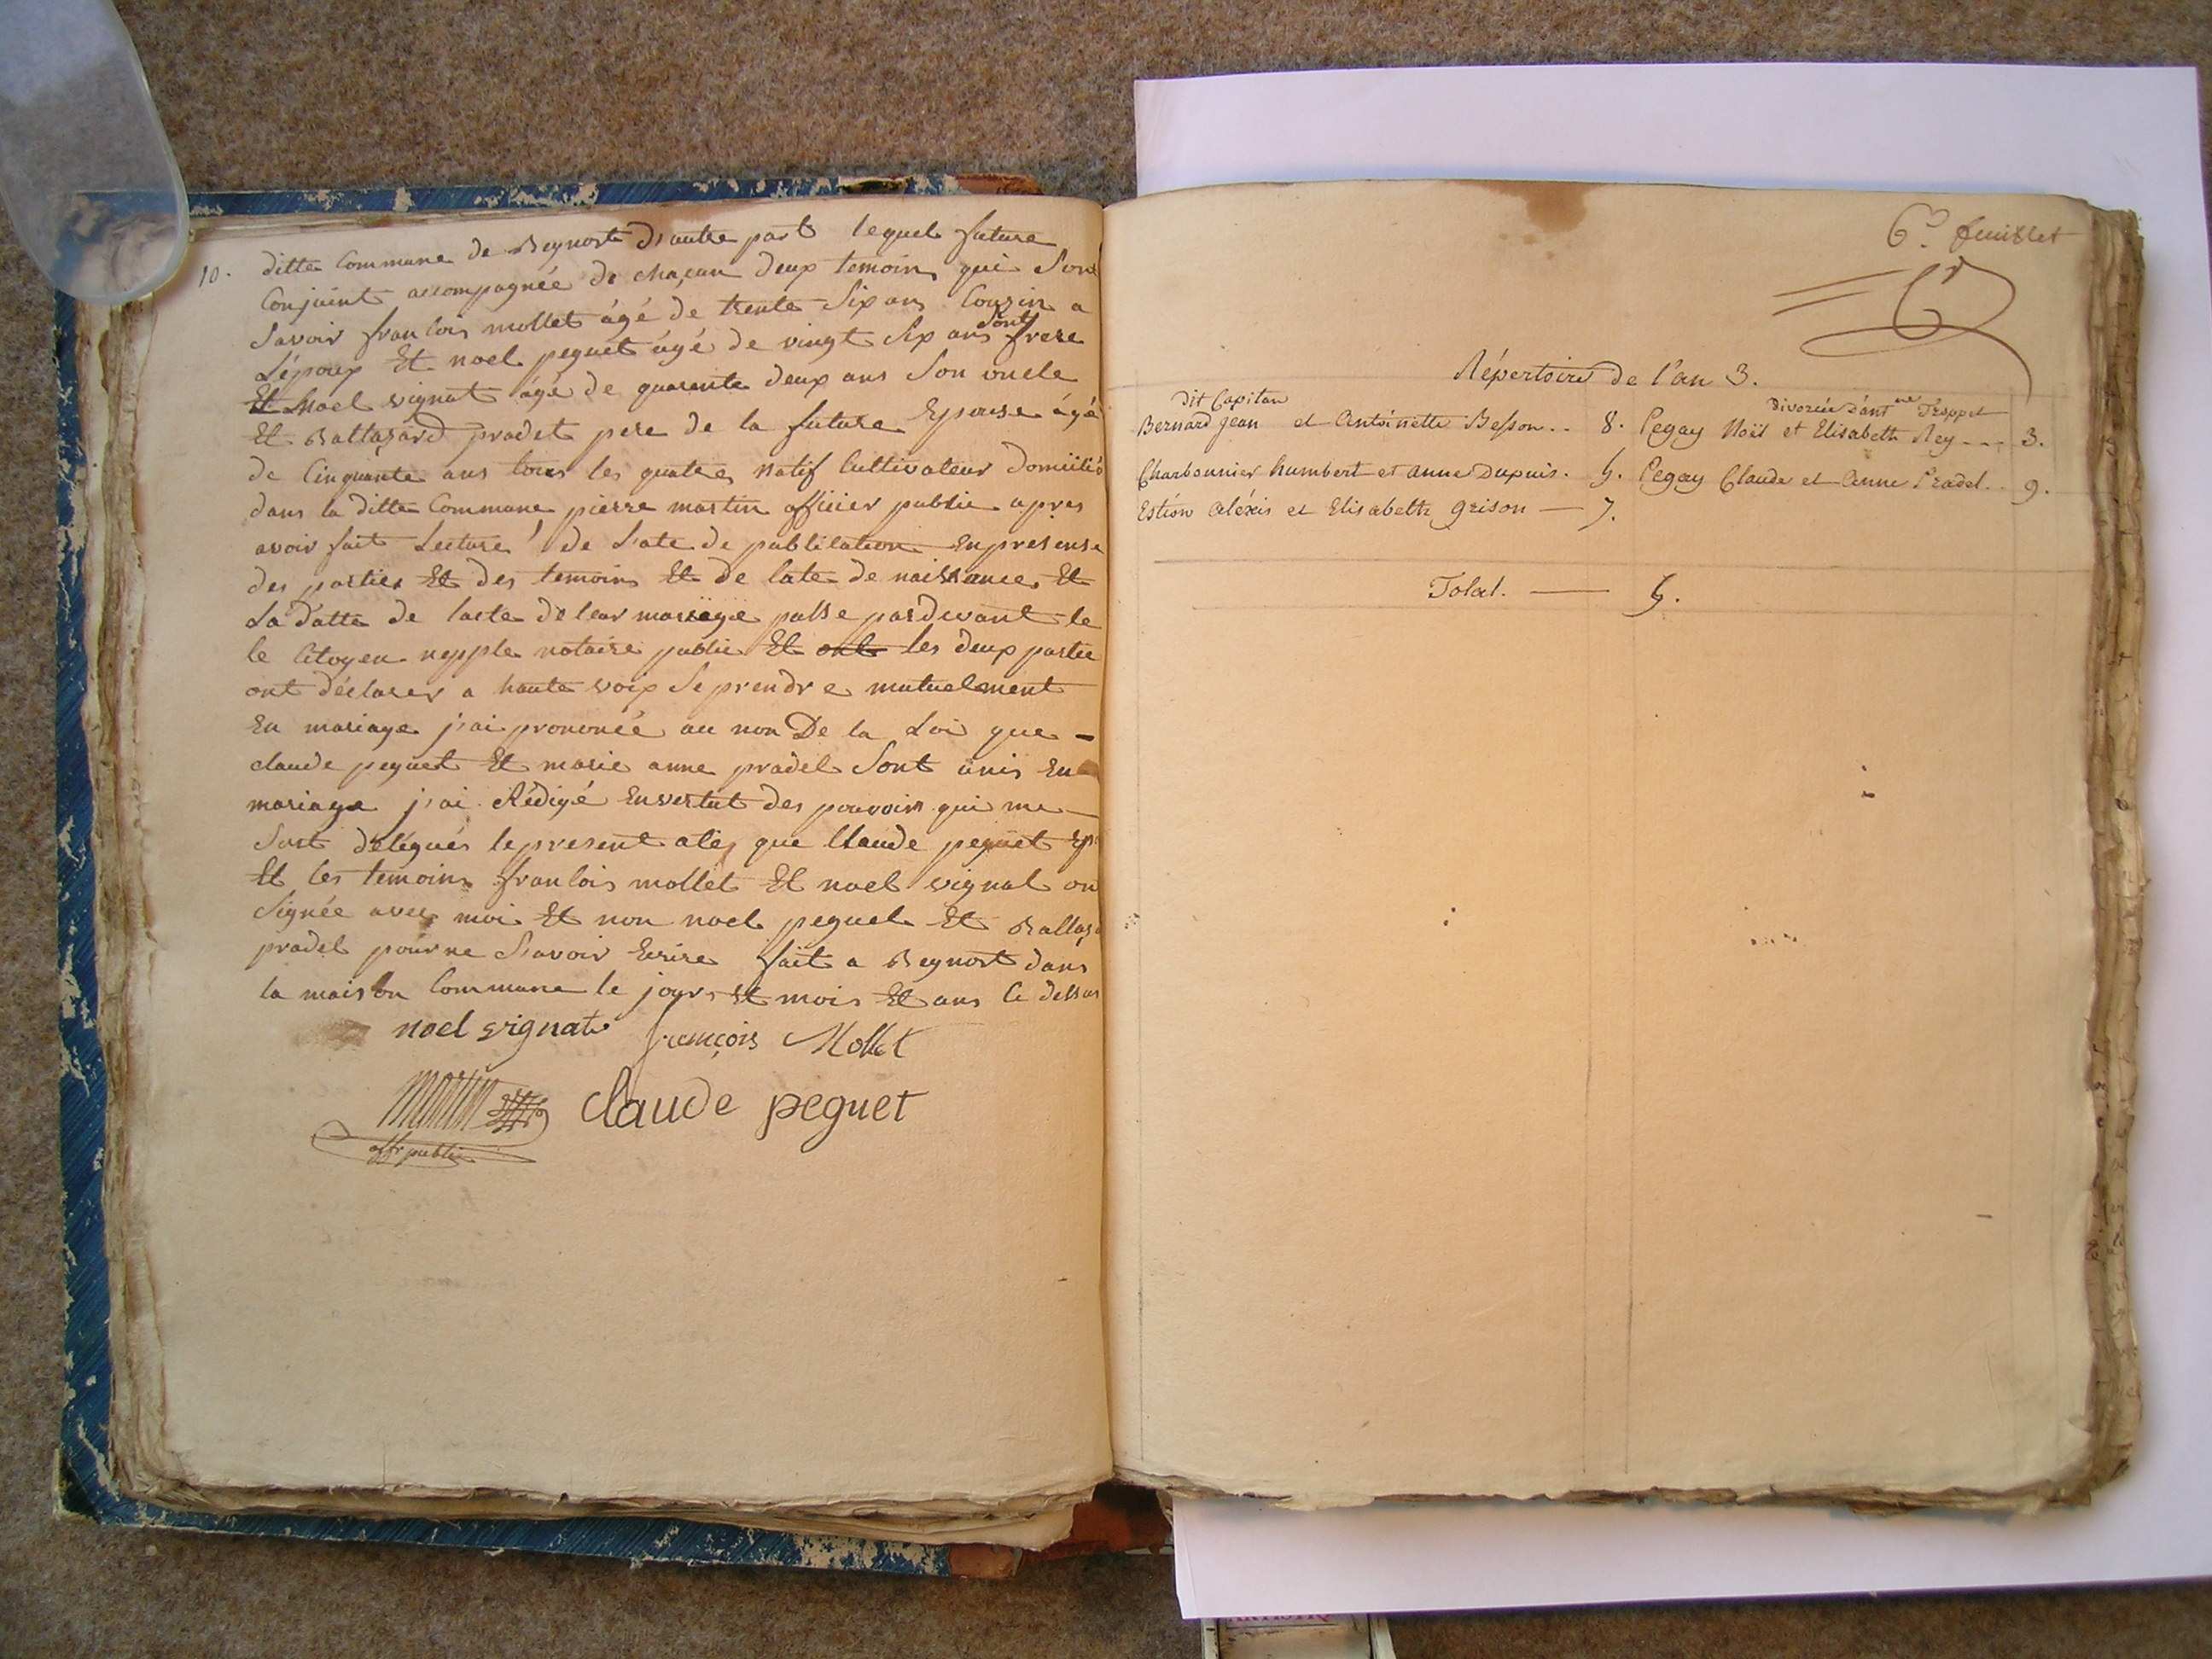 10.
ditte Commune de Beynost d'autre part lequel future
Conjoint accompagnée de chaçun deux temoins qui Sont
Savoir francois mollet âgé de trente Six ans Cousin a
L'époux Et noel peguet âgé de vingt Six ans Sont frere
Et Noel vignat âgé de quarente deux ans Son oncle
Et Baltazard pradel pere de la future Epouse âgé
de Cinquante ans tous les quatre natif Cultivateur domicilié
dans la ditte Commune pierre martin officier public apres
avoir fait Lecture de L'ate de publication En presense
des parties Et des temoins Et de late de naissance Et
La datte de lacte de leur mariage passe pardevant le
le Citoyen nepple notaire public Et ont les deux partie
ont déclarer a haute voix Se prendre mutuelment
En mariage j'ai prononcé au non De la Loi que -
claude peguet Et marie anne pradel Sont unis En
mariage j'ai Rédigé En vertut des pouvoirs qui me
Sont délégués le present ate que Claude peguet Ep
Et les temoins francois mollet Et noel vignat on
Signée avec moi Et non noel peguet Et Baltaz
pradel pour ne Savoir Ecrire fait a Beynost dans
la maison Commune le jours Et mois Et ans Ci dessus
noel vignat françois Mollet
martin claude peguet
offr public
6e. feuillet
Répertoire de l'an 3.
dit Capitan
Bernard Jean et Antoinette Besson.. 8.
Charbonnier humbert et anne Dupuis. 5.
Estion Aléxis et Elisabeth grison — 7.
divorcée d'ant.ne Trappet
Pegay Noël et Elisabeth Rey --- 3.
Pegay Claude et Anne Pradel.. 9.
Total. — 5.